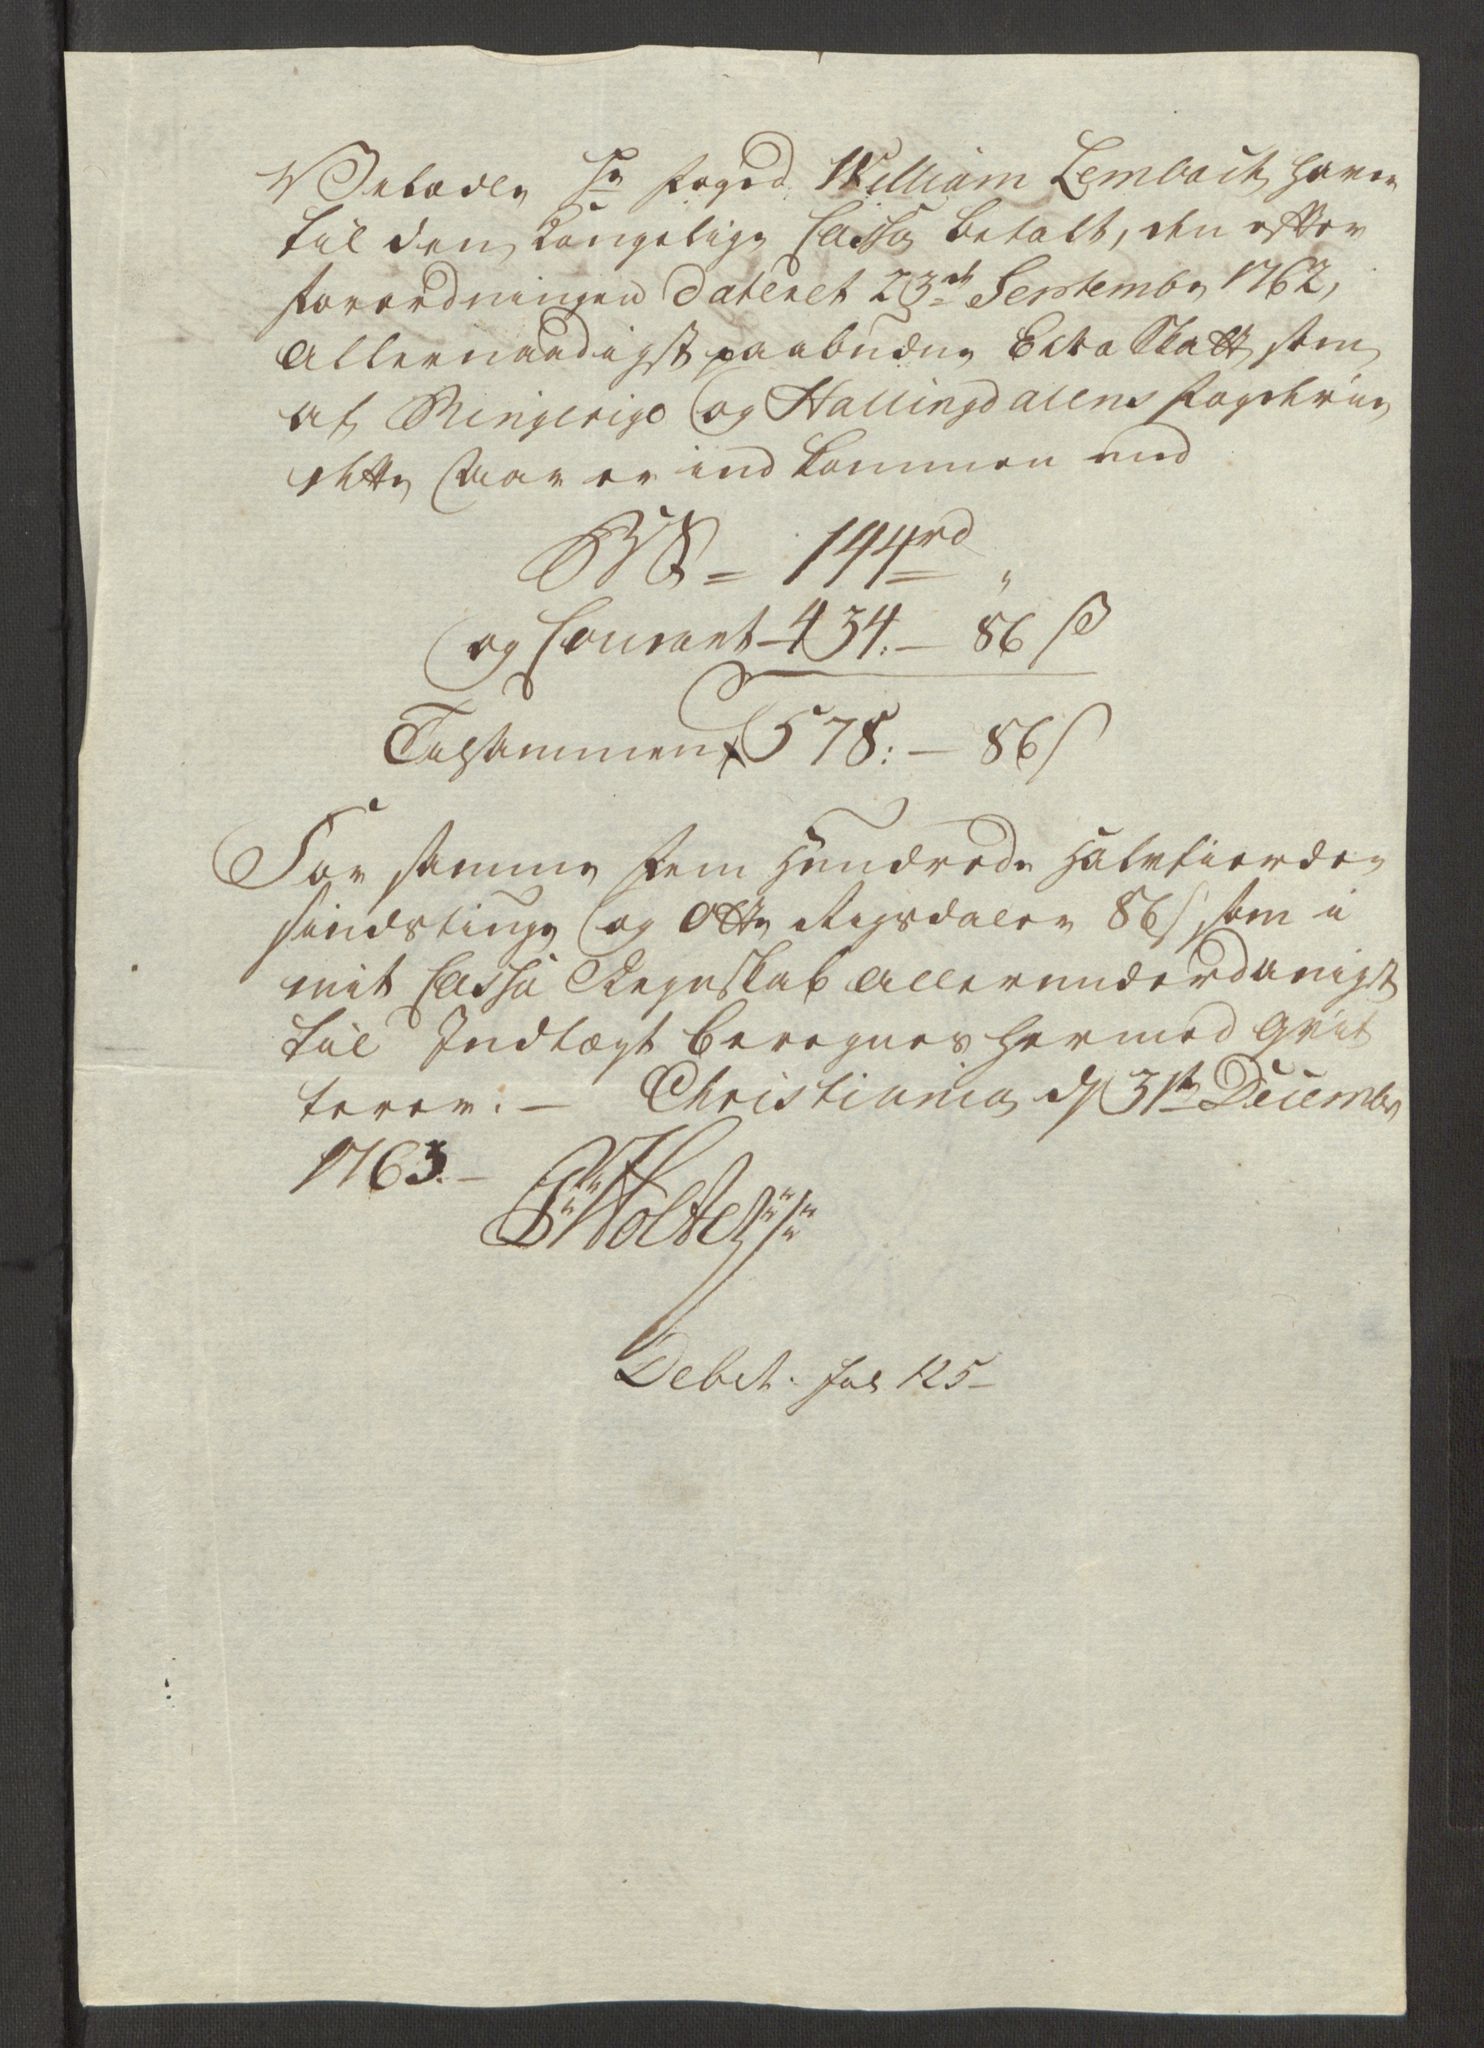 Velædle Hr Foged William Lembach haver
til den Kongelige Cassa betalt, den efter
Forordningen Dateret 23de Septembr 1762,
Allernaadigst paabudne Extra Skatt, som
af Ringerige og Hallingdalens Fogderie
dette Aar er indkommen med
144rd "
og Courant - 434: - 86 ß
Tilsammen 578: - 86 ß
For samme Fem Hundrede Halvfierde
sindstiuge og Otte Rigsdaler 86 ß som i
mit Cassa Regnskab allerunderdanigst
til Indtægt beregnes hermed qvit
terer: - Christiania d 31te Decembr
1763. -
Holter
Debet. fol 125 -